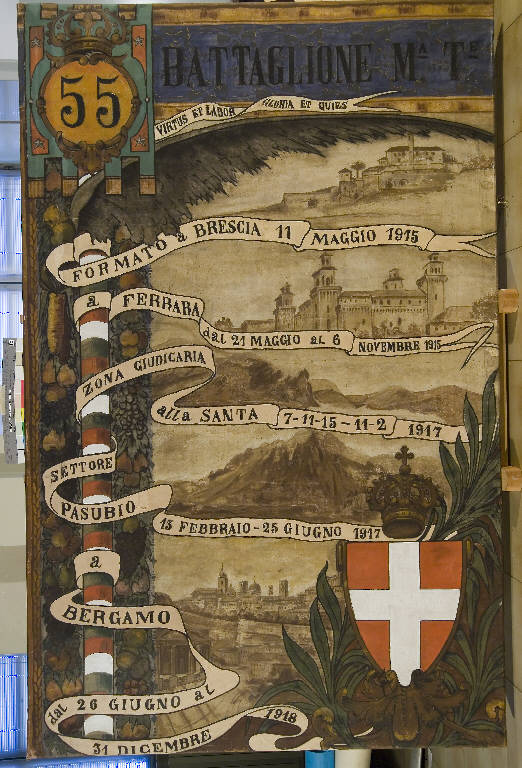 55
BATTAGLIONE Mᴬ Tᴱ
VIRTUS ET LABOR GLORIA ET QUIES
FORMATO a BRESCIA 11 MAGGIO 1915
a FERRARA
dal 21 MAGGIO al 6 NOVEMBRE 1915
ZONA GIUDICARIA
alla SANTA 7-11-15-11-2 1917
SETTORE
PASUBIO
13 FEBBRAIO-25 GIUGNO 1917
a
BERGAMO
dal 26 GIUGNO al
31 DICEMBRE 1918